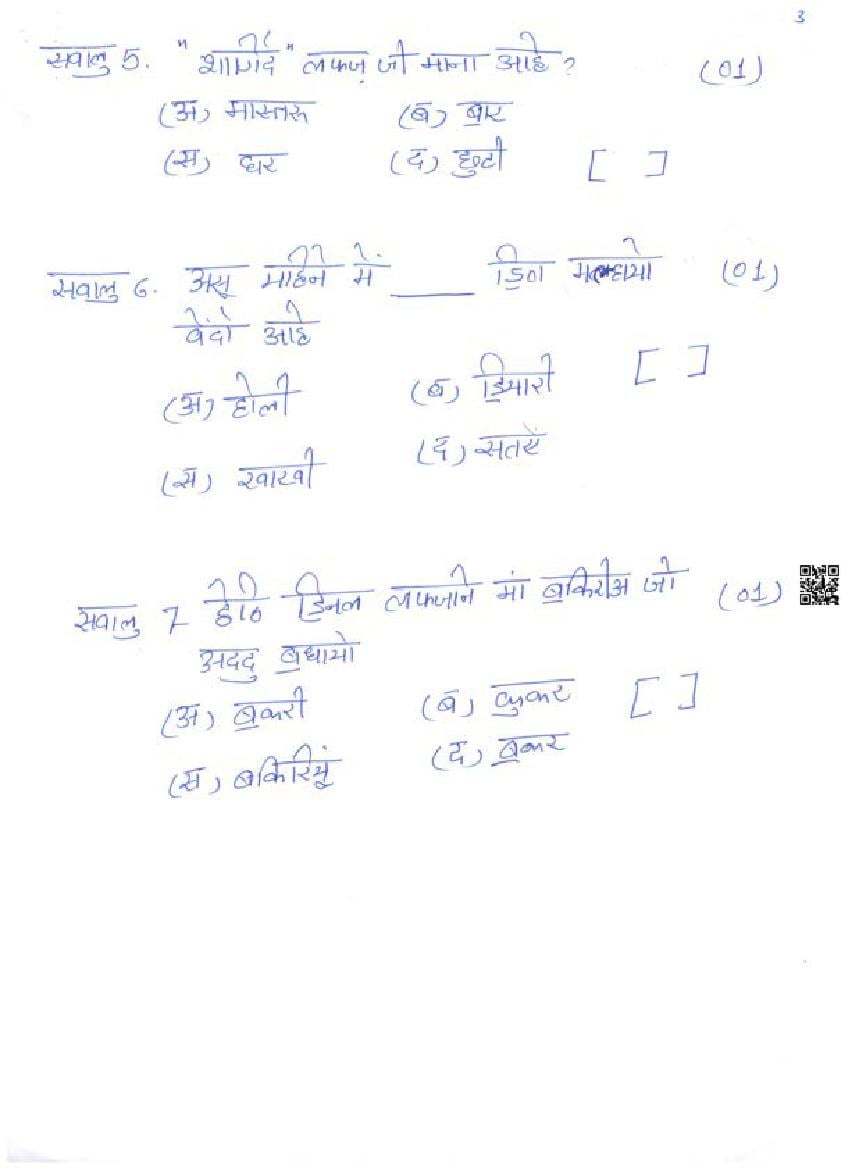 3
सवालु 5. "शागिर्द" लफ्ज़ जी माना आहे? (01)
(अ) मास्तरु (ब) ॿार
(स) घर (द) छुटी [ ]
सवालु 6. असू महिने में ____ ॾिण मल्हायो (01)
वेंदो आहे [ ]
(अ) होली (ब) ॾियारी
(स) राखी (द) सतइं
सवालु 7 हेठि ॾिनल लफ्जनि मां ॿकिरीअ जो (01)
अददु ॿधायो
(अ) ॿकरी (ब) कुकर [ ]
(स) बकिरियूं (द) ॿकर